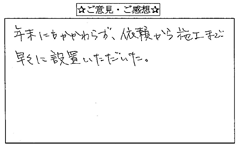 ☆ご意見・ご感想☆
年末にもかかわらず、依頼から施工まで
早くに設置いただいた。